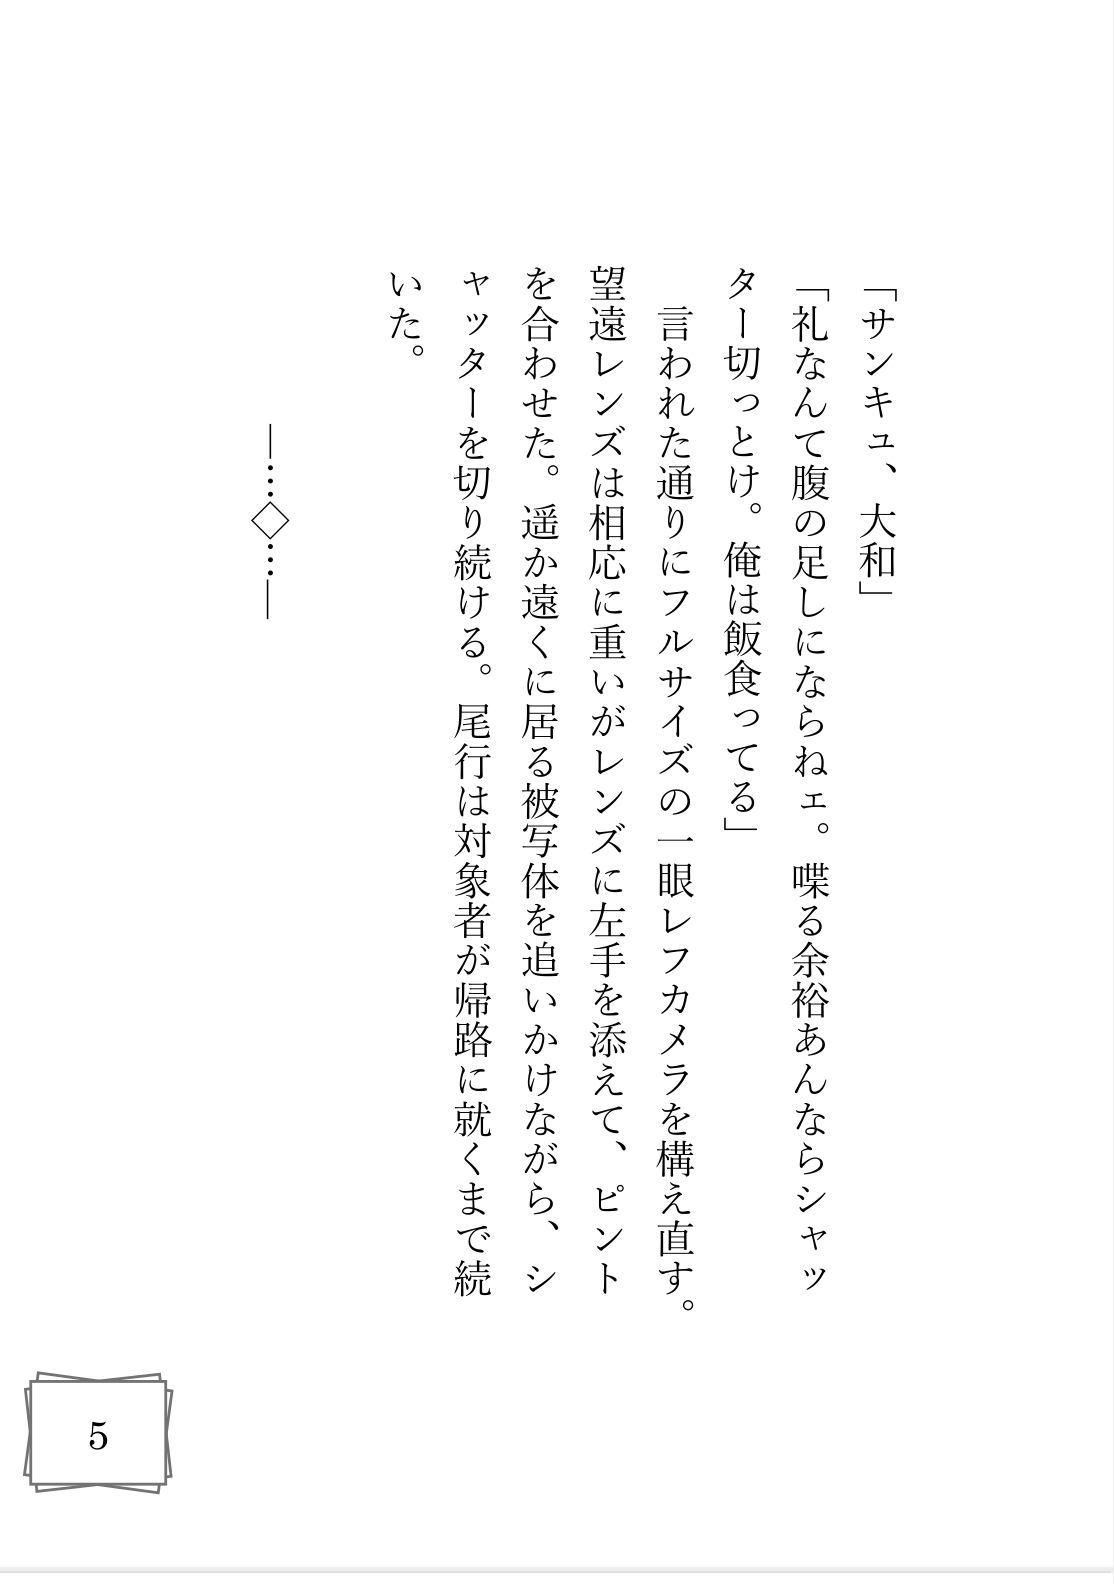 「サンキュ、大和」
「礼なんて腹の足しにならねェ。喋る余裕あんならシャッ
ター切っとけ。俺は飯食ってる」
　言われた通りにフルサイズの一眼レフカメラを構え直す。
望遠レンズは相応に重いがレンズに左手を添えて、ピント
を合わせた。遥か遠くに居る被写体を追いかけながら、シ
ャッターを切り続ける。尾行は対象者が帰路に就くまで続
いた。
―…◇…―
5